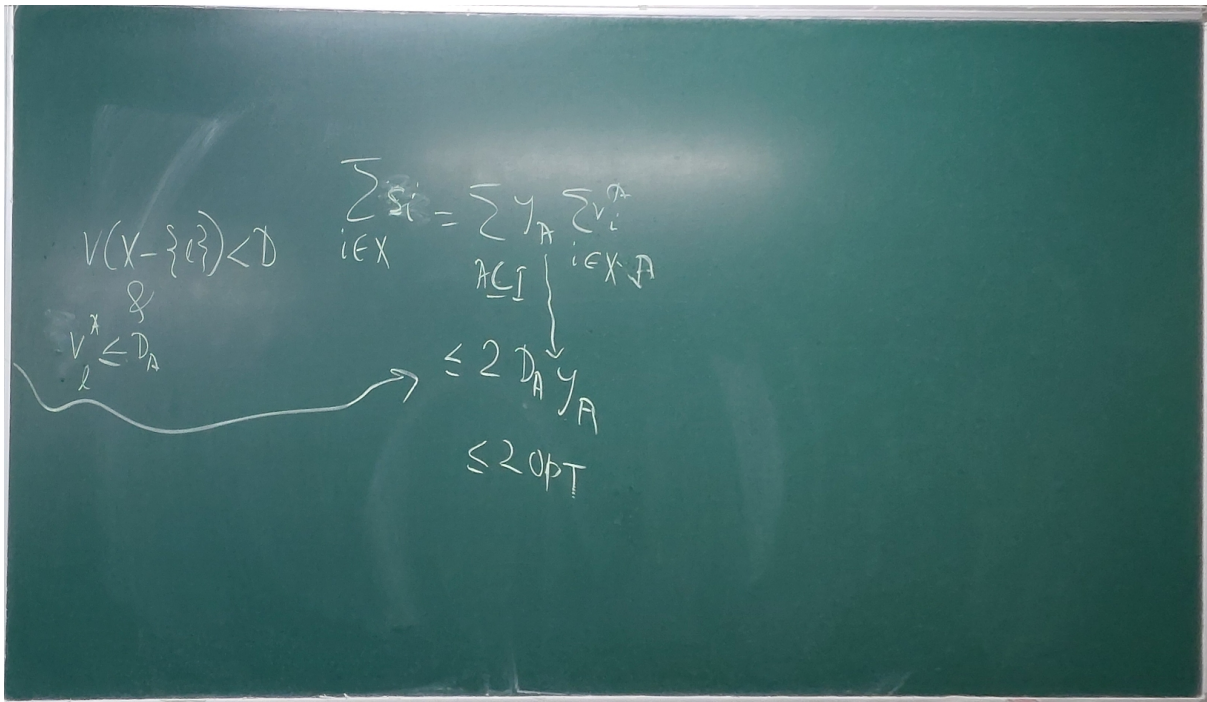 V(X-{l})<D
&
v_l^A ≤ D_A
∑_{i∈X} s_i = ∑_{A⊆I} y_A ∑_{i∈X-A} v_i^A
≤ 2 D_A y_A
≤ 2 OPT